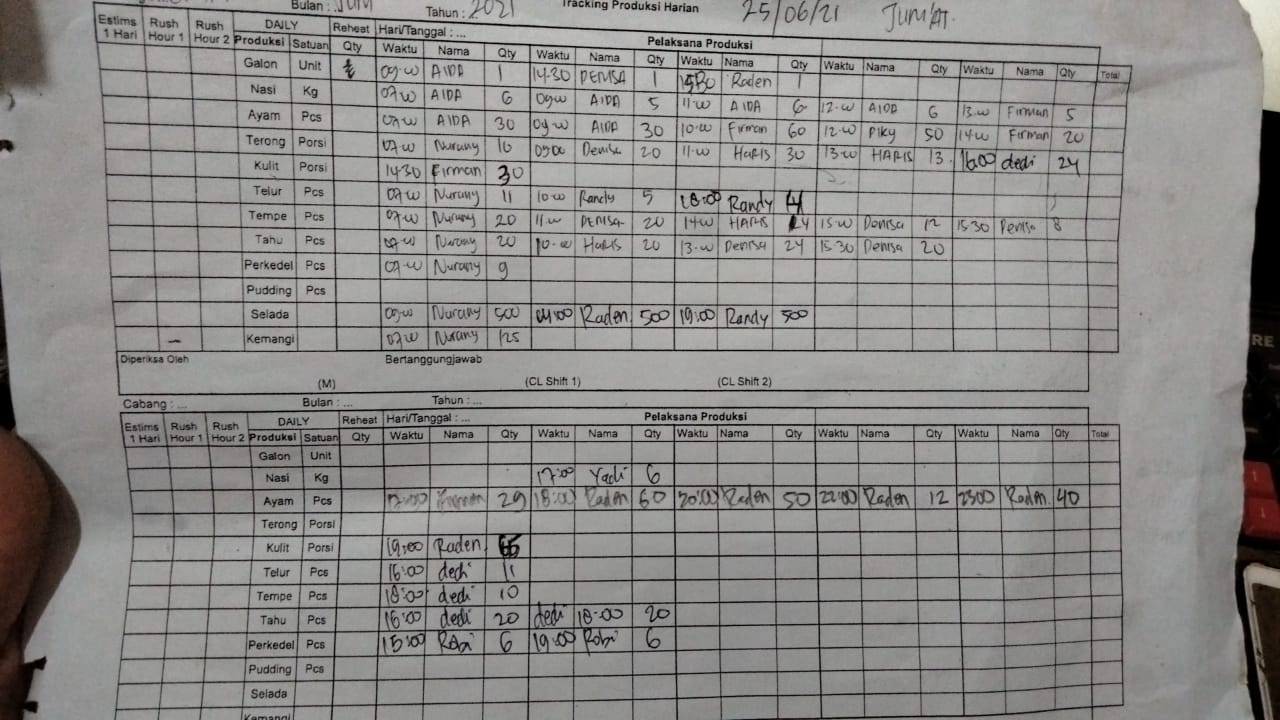 Bulan : JUNI Tahun : 2021 Tracking Produksi Harian 25/06/21 JUM'AT.
Estims 1 Hari Rush Hour 1 Rush Hour 2 DAILY Reheat Hari/Tanggal : ... Pelaksana Produksi
Produksi Satuan Qty Waktu Nama Qty Waktu Nama Qty Waktu Nama Qty Waktu Nama Qty Waktu Nama Qty Total
Galon Unit 09.00 AIDA 1 14.30 DENISA 1 Raden 1
Nasi Kg 07.00 AIDA 6 09.00 AIDA 5 11.00 AIDA 6 12.00 AIDA 6 13.00 Firman 5
Ayam Pcs 07.00 AIDA 30 09.00 AIDA 30 10.00 Firman 60 12.00 Piky 50 14.00 Firman 20
Terong Porsi 07.00 Nurany 10 09.00 Denisa 20 11.00 HARIS 30 13.00 HARIS 13. 16.00 dedi 24
Kulit Porsi 14.30 Firman 30
Telur Pcs 07.00 Nurany 11 10.00 Randy 5 18:00 Randy 4
Tempe Pcs 07.00 Nurany 20 11.00 DENISA 20 14.00 HARIS 24 15.00 Denisa 12 15.30 Denisa 8
Tahu Pcs 07.00 Nurany 20 10.00 HARIS 20 13.00 Denisa 24 15.30 Denisa 20
Perkedel Pcs 07.00 Nurany 9
Pudding Pcs
Selada 07.00 Nurany 500 Raden 500 19:00 Randy 500
Kemangi 07.00 Nurany 125
Diperiksa Oleh Bertanggungjawab
(M) (CL Shift 1) (CL Shift 2)
Cabang : ... Bulan : ... Tahun : ...
Estims 1 Hari Rush Hour 1 Rush Hour 2 DAILY Reheat Hari/Tanggal : ... Pelaksana Produksi
Produksi Satuan Qty Waktu Nama Qty Waktu Nama Qty Waktu Nama Qty Waktu Nama Qty Waktu Nama Qty Total
Galon Unit
Nasi Kg 17:00 Yadi 6
Ayam Pcs Firman 29 18:00 Raden 60 20:00 Raden 50 22:00 Raden 12 23:00 Raden 40
Terong Porsi
Kulit Porsi 19:00 Raden
Telur Pcs 16:00 dedi 11
Tempe Pcs 18:00 dedi 10
Tahu Pcs 16:00 dedi 20 dedi 18:00 20
Perkedel Pcs 15:00 Robi 6 19:00 Robi 6
Pudding Pcs
Selada
Kemangi